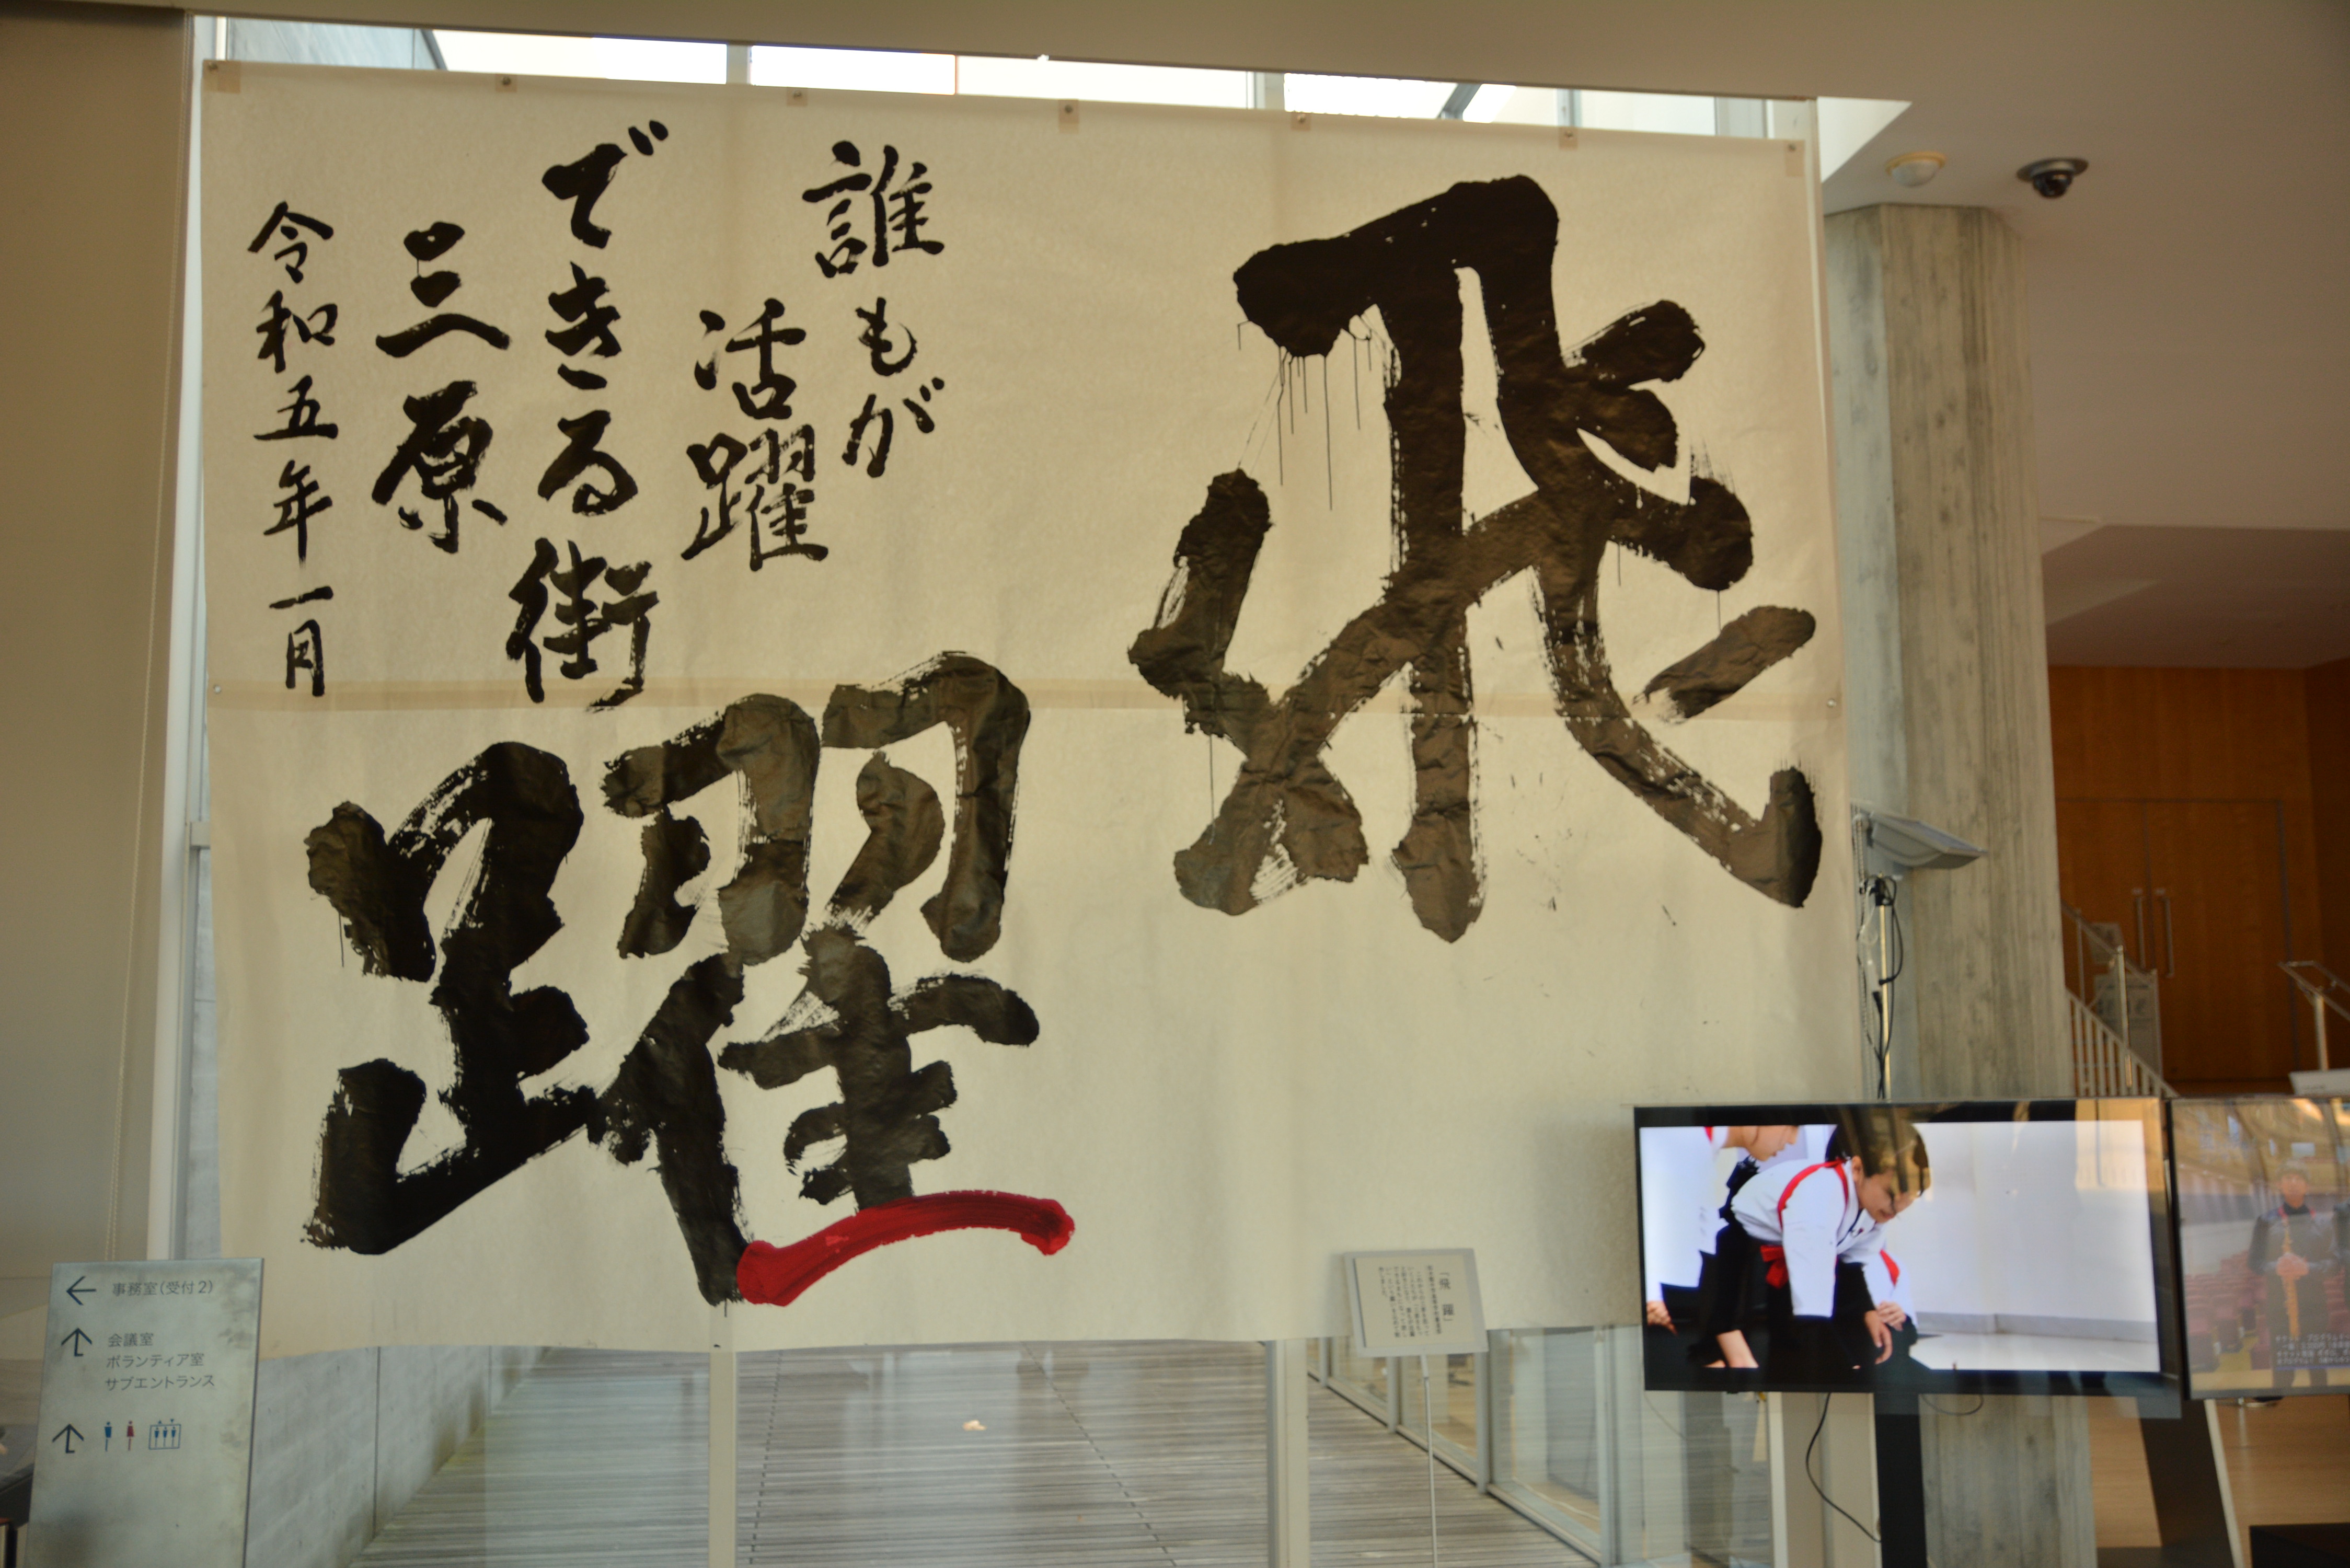 飛躍
誰もが
活躍
できる街
三原
令和五年一月
「飛躍」
事務室(受付2)
会議室
ボランティア室
サブエントランス